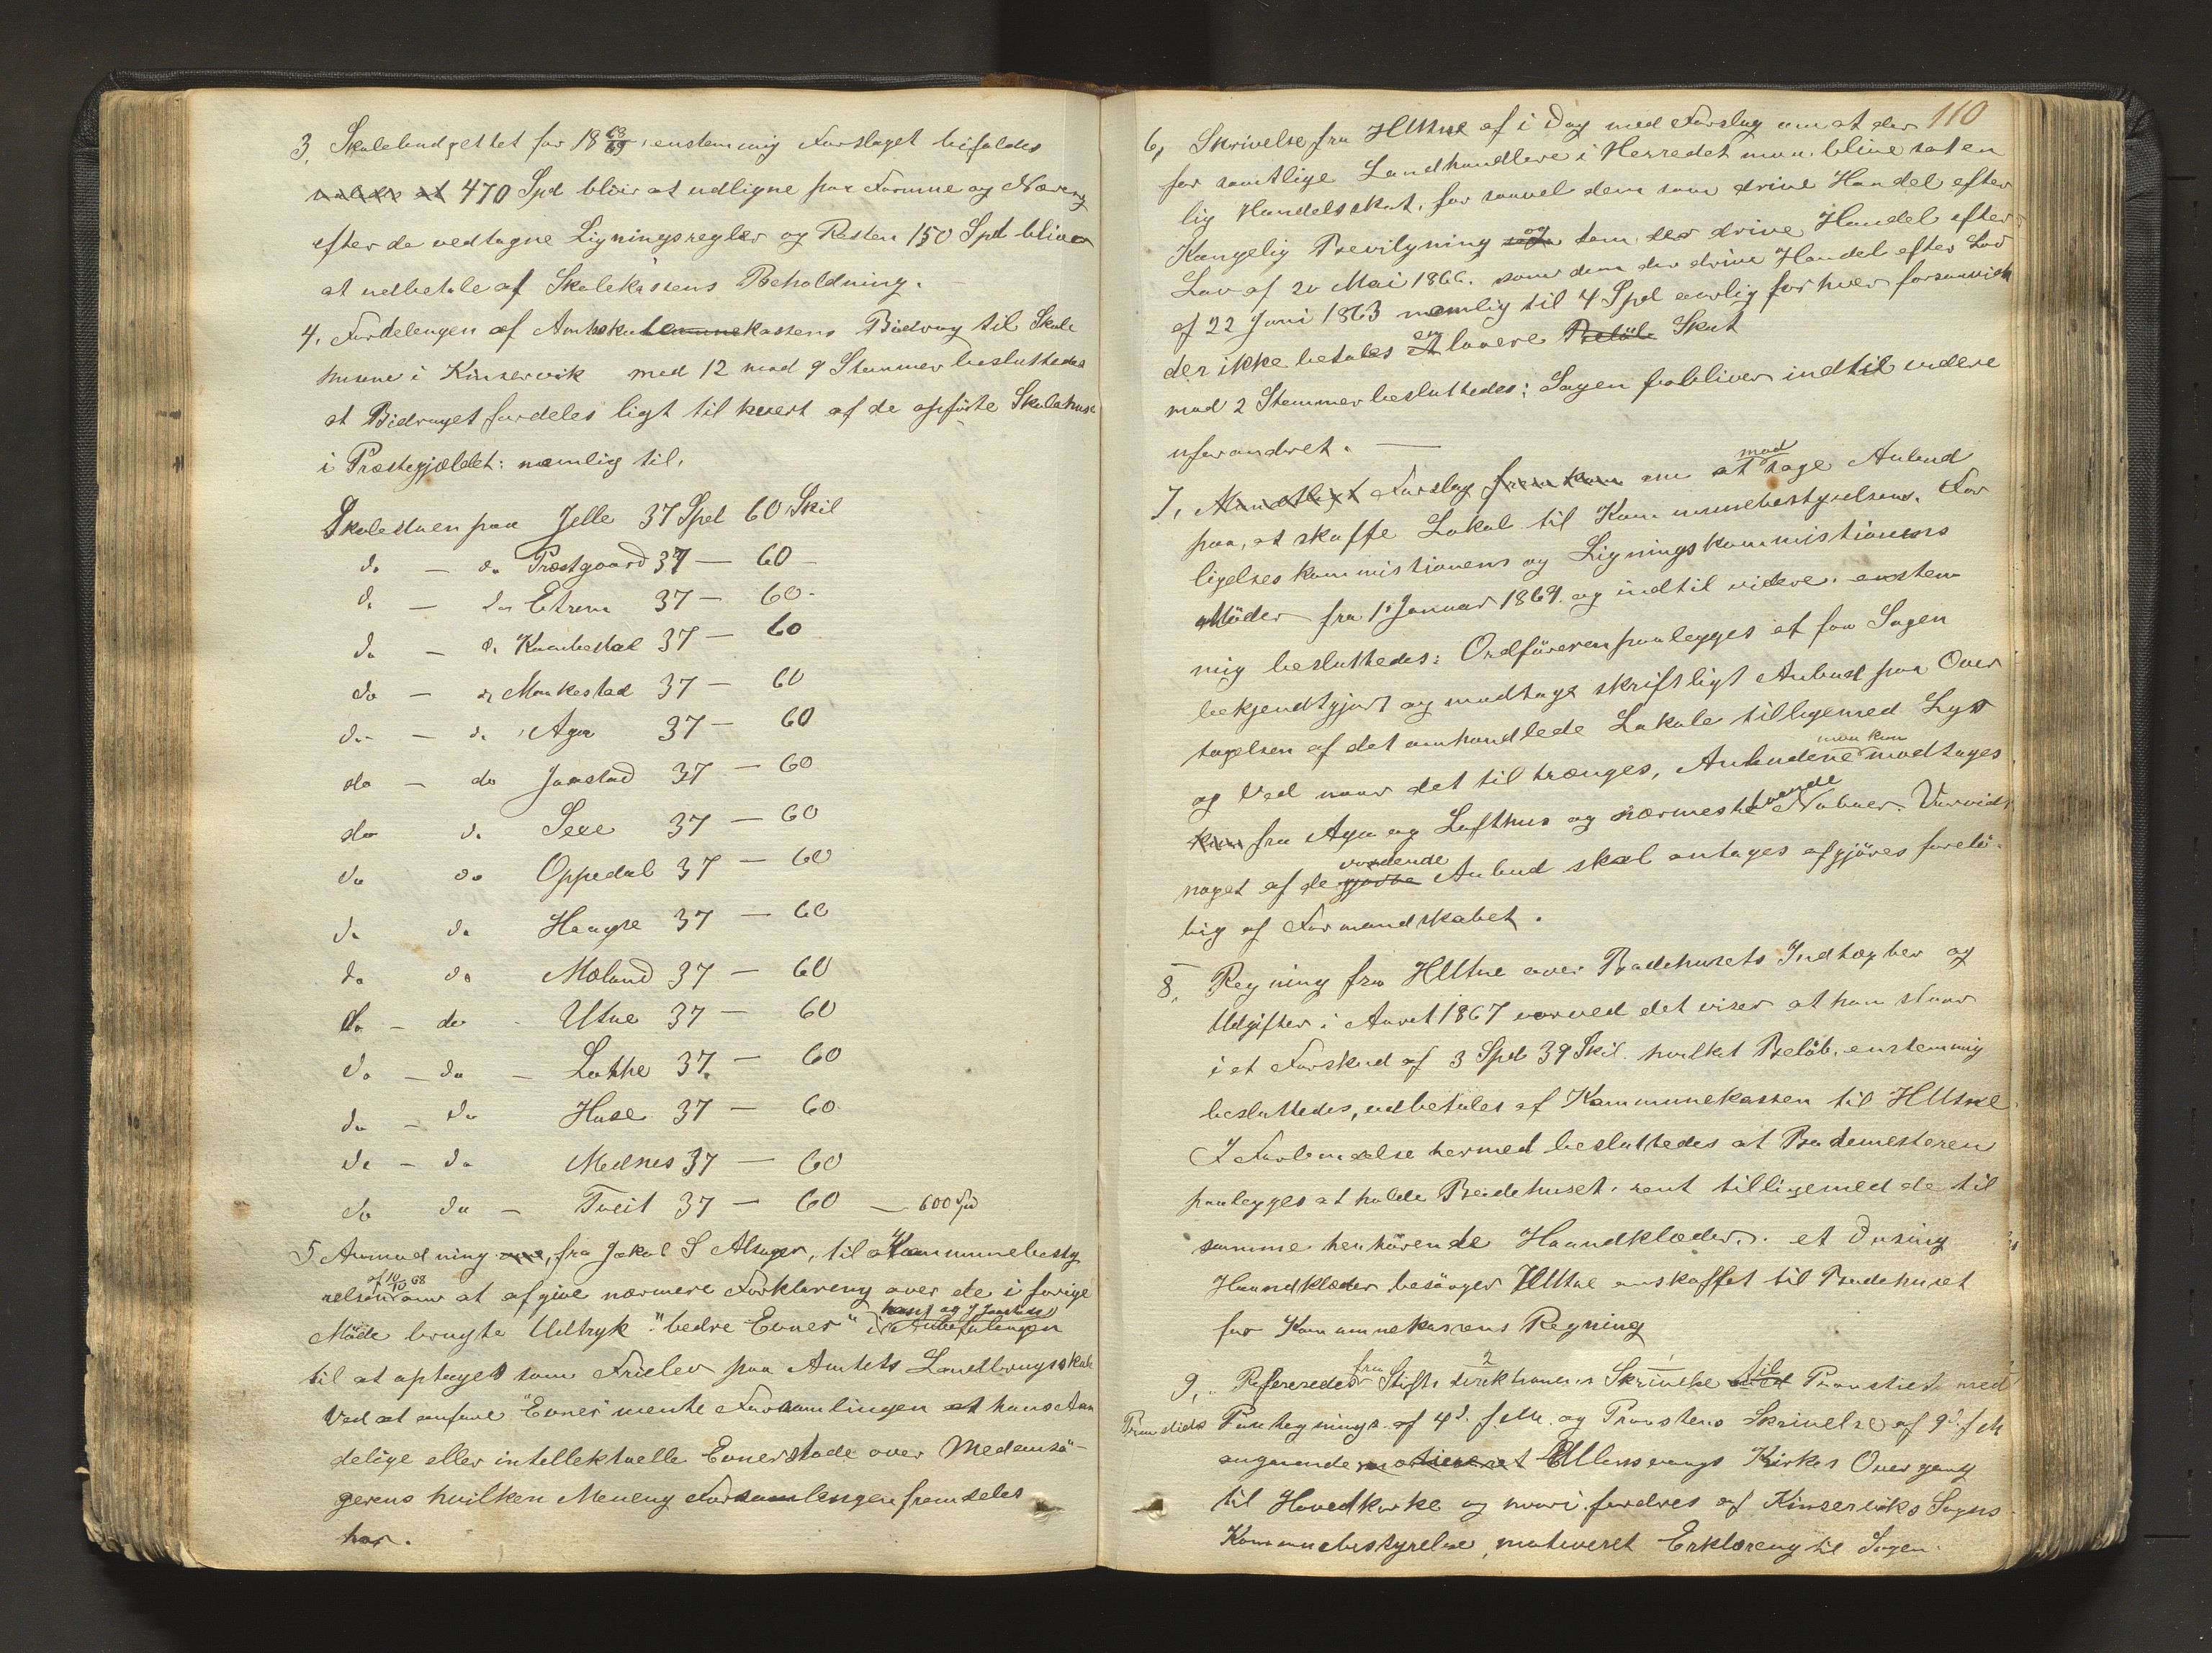 3, Skolebudgettet for 18 68/69, enstemmig Forslaget bifaldes
at 470 Spd bliver at udligne paa Formue og Næring
efter de vedtagne Ligningsregler og Resten 150 Spd bliver
at udbetale af Skolekassens Beholdning.
4, Fordelingen af Amtskolekassens Bidrag til Skole
husene i Kinservik med 12 mod 9 Stemmer besluttedes
at Bidraget fordeles ligt til hvert af de opførte Skolehuse
i Præstegjældet: nemlig til,
Skolestuen paa Jelle 37 Spd 60 Skil
do — do Præstgaard 37 — 60 —
do — do Eitrem 37 — 60 -
do — do Kambestad 37 — 60
do — do Maakestad 37 — 60
do — do Aga 37 — 60
do — do Jaastad 37 — 60
do do Sexe 37 — 60
do do Oppedal 37 — 60
do do Haugse 37 — 60
do do Moland 37 — 60
do — do - Utne 37 — 60
do — do — Lothe 37 — 60
do — do Huse 37 — 60
do — do Mednes 37 — 60
do do — Tveit 37 — 60 — 600 Spd
5 Anmodning fra Jakob S Alsager, til Kommunebesty
relsen af 10/10 68 om at afgive nærmere Forklaring over de i forige
Møde brugte Udtryk "bedre Evner" i Anbefalingen
til at optages som Frielev paa Amtets Landbrugsskole
Ved at anføre "Evner" mente Forsamlingen at hans Aan
delige eller intellektuelle Evner stode over Medansø-
gerens hvilken Mening Forsamlingen fremdeles
har.
110
6, Skrivelse fra HUtne af i Dag med Forslag om at der
for samtlige Landhandlere i Herredet maa blive sat en
lig Handelsskat, for saavel dem som drive Handel efter
Kongelig Bevilgning og dem der drive Handel efter
Lov af 20 Mai 1866. som dem der drive Handel efter Lov
af 22 Juni 1863 nemlig til 4 Spd aarlig for hver forsaavidt
der ikke betales en lavere Beløb Skat
mod 2 Stemmer besluttedes: Sagen forbliver indtil videre
uforandret. —
7, Mundtligt Forslag fremkom om at modtage Anbud
paa, at skaffe Lokal til Kommunebestyrelsens, For
ligelseskommistionens og Ligningskommistionens
Møder fra 1ste Januar 1869. og indtil videre. enstem
mig besluttedes: Ordføreren paalegges at faa Sagen
bekjendtgjort og modtage skriftligt Anbud paa Over
tagelsen af det omhandlede Lokale tilligemed Lys
og Ved naar det til trænges, Anbudene maa kun modtages
kun fra Aga og Lofthus og nærmeste Naboer. Vorvidt
noget af de vordende Anbud skal antages afgjøres forelø-
big af Formandskabet.
8, Regning fra HUtne over Badehusets Indtægter og
Udgifter i Aaret 1867 vorved det viser at han staar
i et Forskud af 3 Spd 39 Skil. hvilket Beløb, enstemmig
besluttedes, udbetales af Kommunekassen til HUtne.
I Forbindelse hermed besluttedes at Bademesteren
paalegges at holde Badehuset rent tilligemed de til
samme henhørende Haandklæder. et Dusing
Haandklæder besørges HUtne anskaffet til Badehuset
for Kommunekassens Regning
9, Refereredes fra Stiftsdirektionen Skrivelse til Provstiet med
Provstiets Paategnings af 4de f.M. og Provstens Skrivelse af 9de f M
angaaende motiveret Ullensvangs Kirkes Overgang
til Hovedkirke og hvori fordres af Kinserviks Sogns
Kommunebestyrelse, motiveret Erklæring til Sagen.